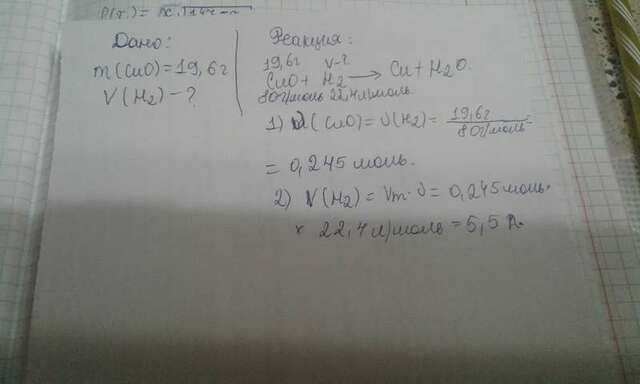 Дано:
m(CuO)=19,6г
V(H₂)-?
Реакция:
19,6г V-?
CuO + H₂ → Cu + H₂O.
80г/моль 22,4л/моль.
1) ν(CuO)=ν(H₂)= 19,6г / 80г/моль =
= 0,245 моль.
2) V(H₂)=Vm·ν=0,245моль·
× 22,4 л/моль = 5,5 л.